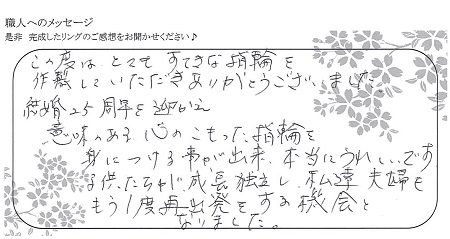 職人へのメッセージ
是非 完成したリングのご感想をお聞かせください♪
この度は とても すてきな指輪を
作製していただきありがとうございました。
結婚25周年を迎かえ
意味のある 心のこもった指輪を
身につける事が出来、本当にうれしいです
子供たちが成長独立し、私達 夫婦も
もう1度再出発をする機会と
なりました。